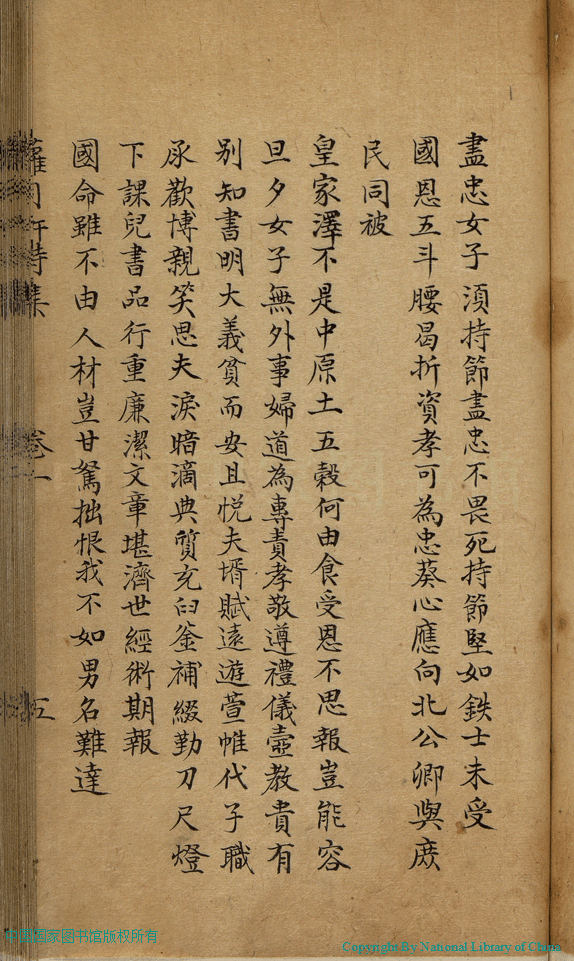 盡忠女子湏持節盡忠不畏死持節堅如鉄士未受
國恩五斗腰曷折資孝可為忠葵心應向北公卿與庶
民同被
皇家澤不是中原土五穀何由食受恩不思報豈能容
旦夕女子無外事婦道為專責孝敬遵禮儀壼教貴有
別知書明大義貧而安且悅夫壻賦遠遊萱帷代子職
承歡博親笑思夫淚暗滴典質充臼釜補綴勤刀尺燈
下課兒書品行重廉潔文章堪濟世經術期報
國命雖不由人材豈甘駑拙恨我不如男名難達
集 卷一 五
中国国家图书馆版权所有
Copyright By National Library of China